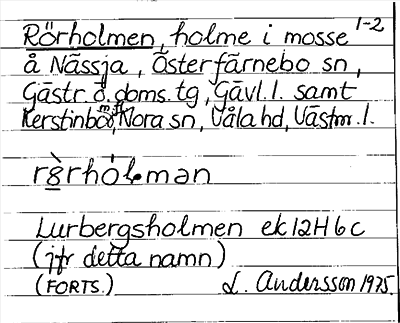 1-2
Rörholmen, holme i mosse
å Nässja, Österfärnebo sn,
Gästr. ö. doms. tg, Gävl. l. samt
Kerstinbo, Nora sn, Våla hd, Västm. l.
Lurbergsholmen ek 12H 6c
(jfr detta namn)
(FORTS.) L. Andersson 1975.